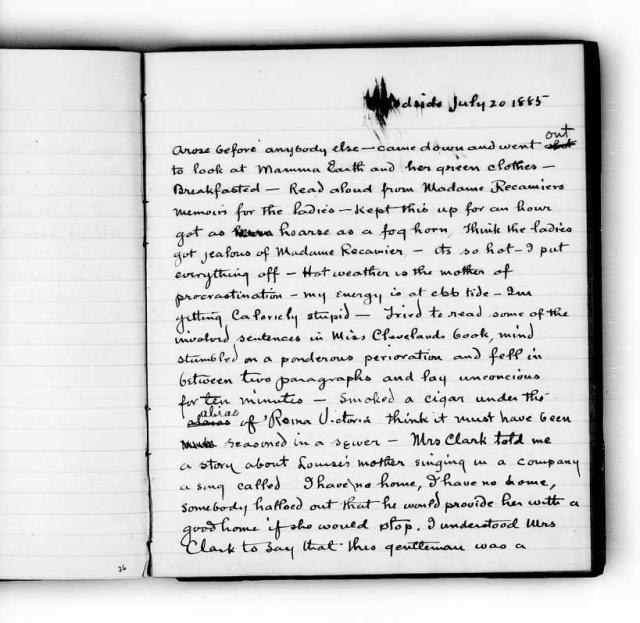 dside July 20 1885
out
Arose before anybody else — came down and went
to look at Mamma Earth and her green clothes —
Breakfasted — Read aloud from Madame Recamiers
memoirs for the ladies — Kept this up for an hour
got as hoarse as a fog horn, Think the ladies
got jealous of Madame Recamier, — its so hot — I put
everything off — Hot weather is the mother of
procrastination — my energy is at ebb tide — Im
getting Caloricly stupid — Tried to read some of the
involved sentences in Miss Clevelands book, mind
stumbled on a ponderous perioration and fell in
between two paragraphs and lay unconcious
for ten minutes — Smoked a cigar under the
alias
of Reina Victoria think it must have been
seasoned in a sewer — Mrs Clark told me
a story about Louise's mother singing in a company
a song called I have no home, I have no home,
somebody halloed out that he would provide her with a
good home if she would stop. I understood Mrs
Clark to say that this gentleman was a
26